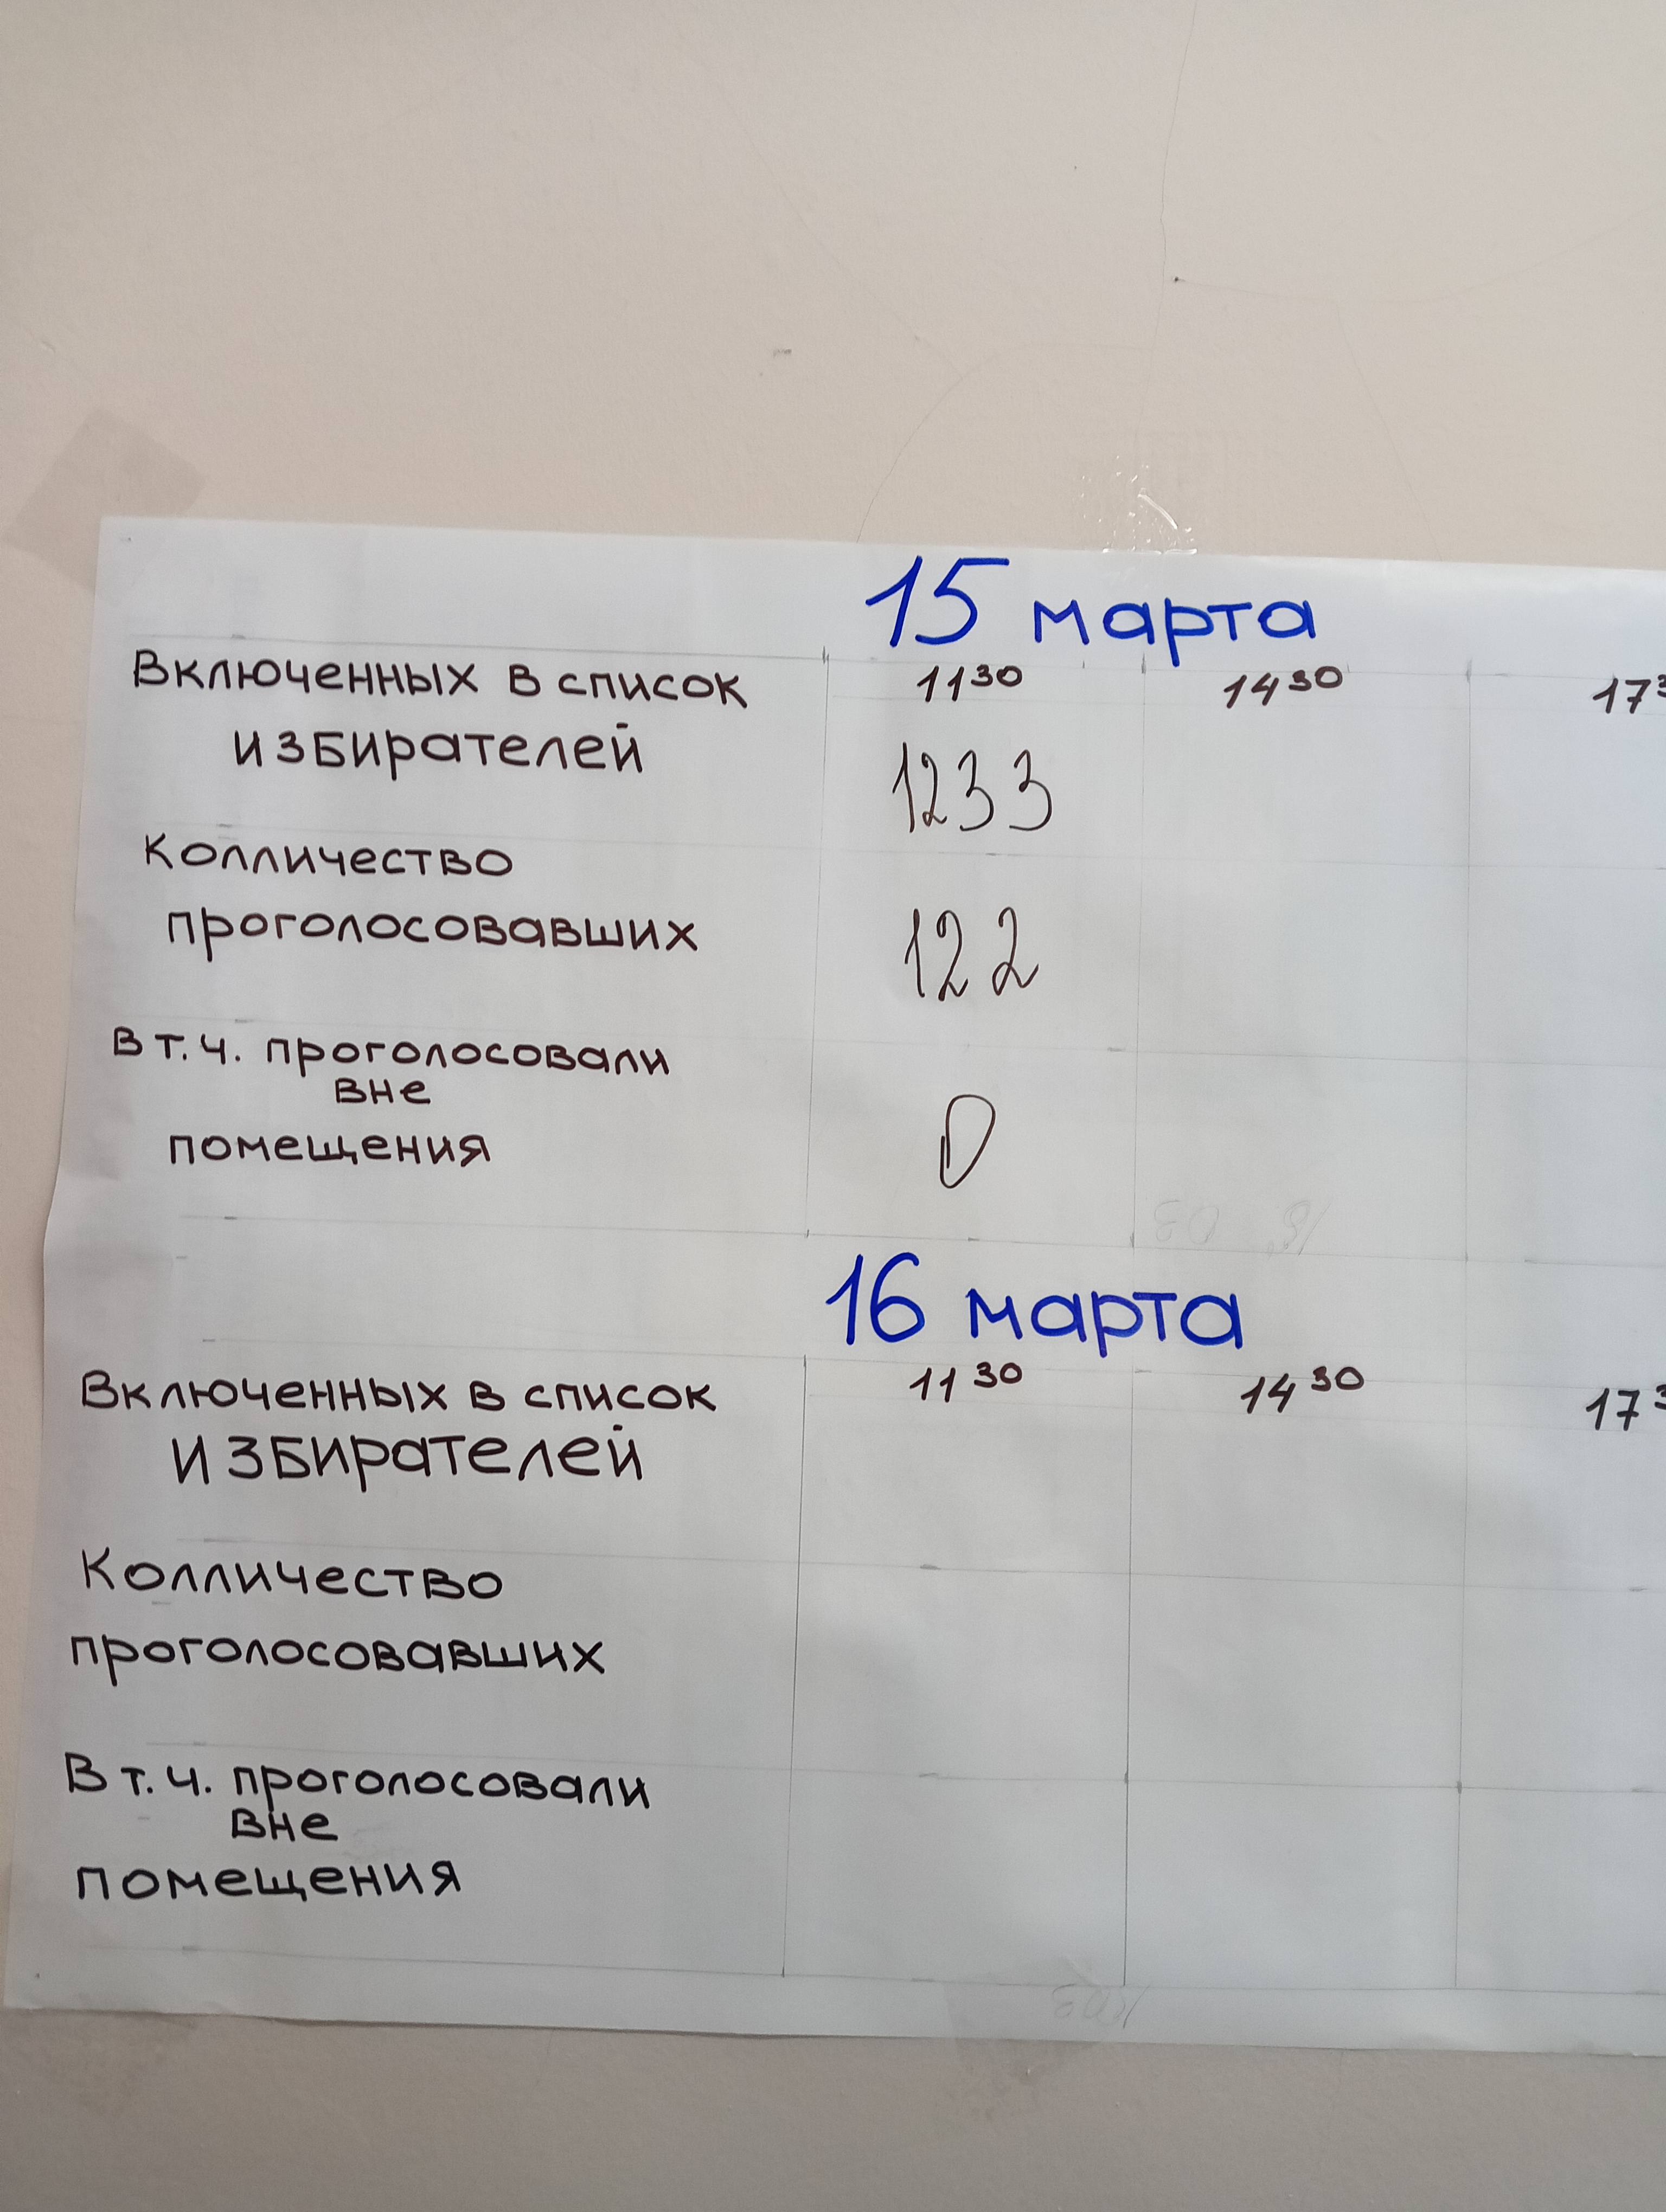 15 марта
Включенных в список 11 30 14 30 17
избирателей 1233
Колличество
проголосовавших 122
В т.ч. проголосовали
вне
помещения 0
16 марта
Включенных в список 11 30 14 30 17
избирателей
Колличество
проголосовавших
В т.ч. проголосовали
вне
помещения